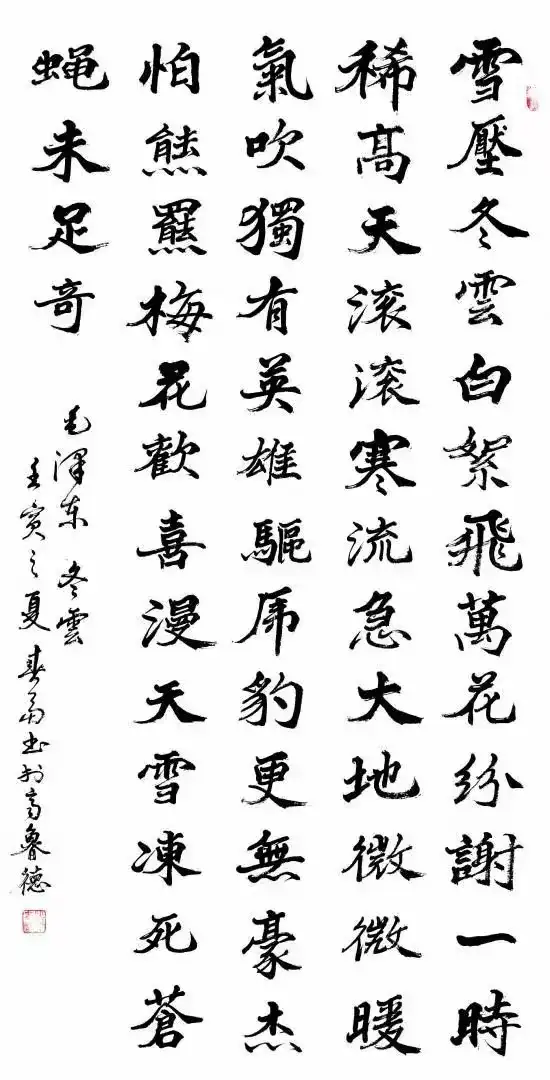 雪壓冬雲白絮飛萬花紛謝一時
稀高天滚滚寒流急大地微微暖
氣吹獨有英雄驅虎豹更無豪杰
怕熊羆梅花歡喜漫天雪凍死蒼
蝇未足奇
毛澤东 冬雲
壬寅之夏 春书於魯德